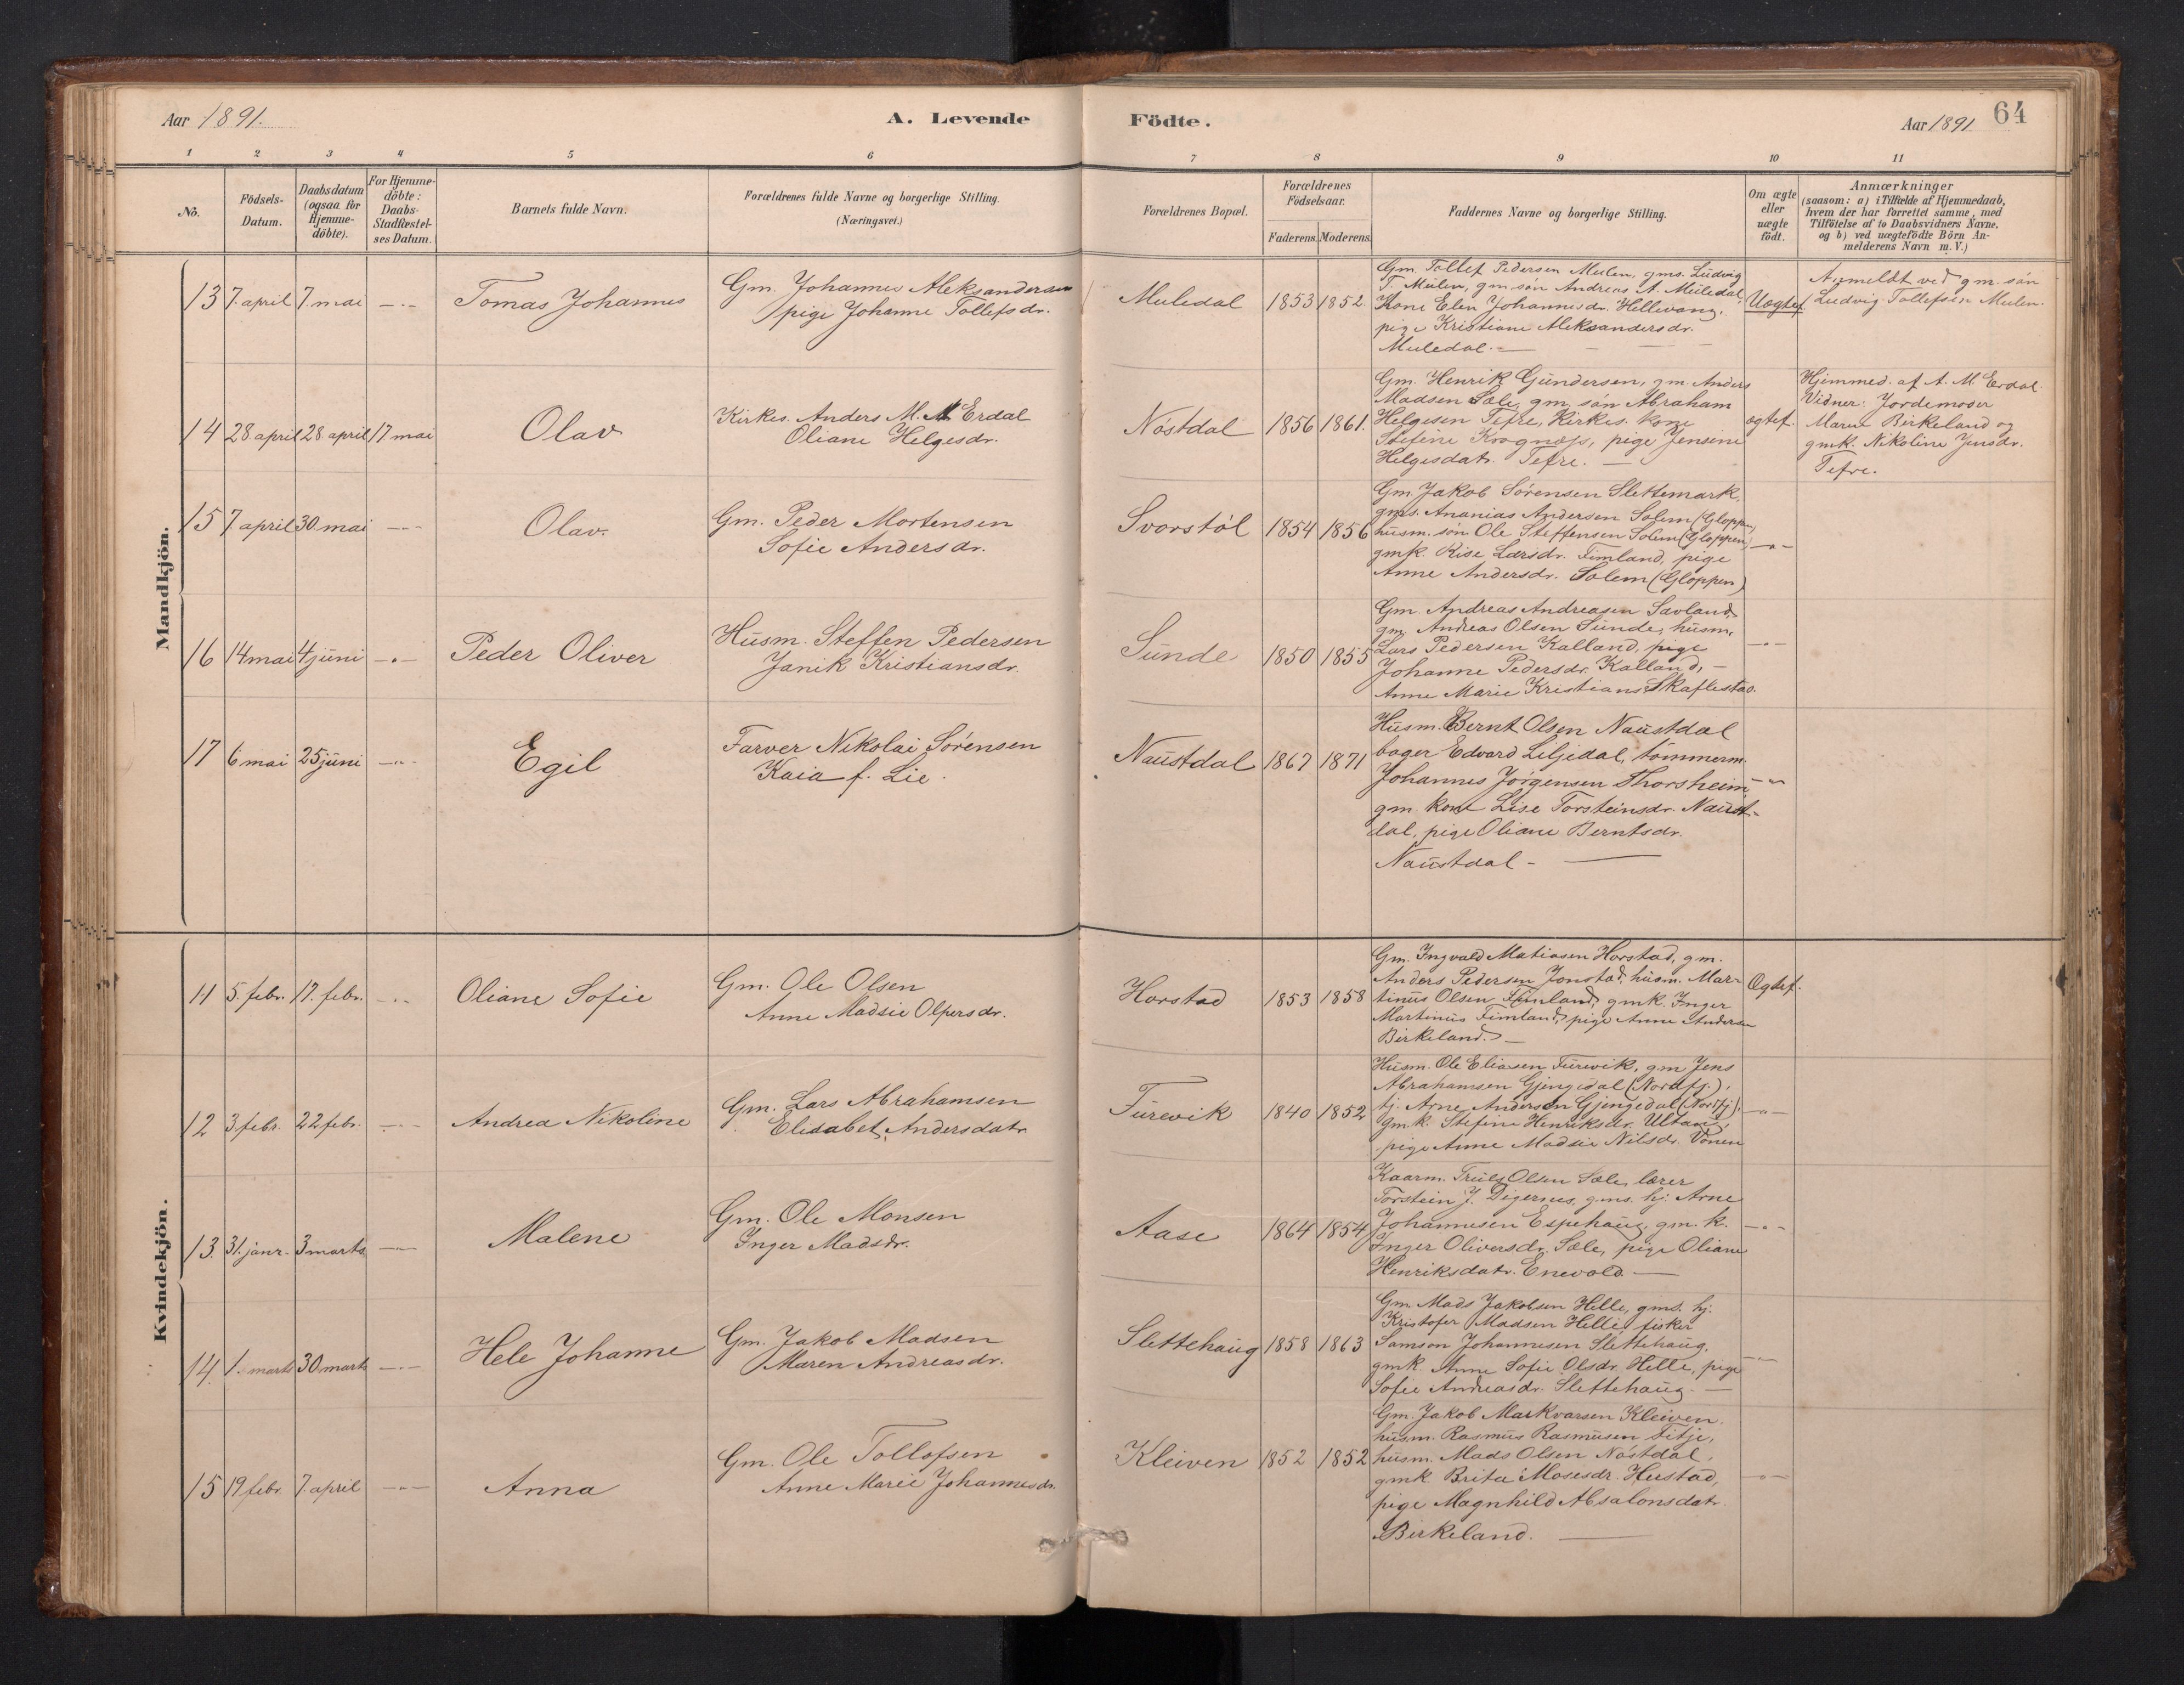 Aar 1891.
A. Levende Födte.
Aar 1891
64
1 2 3 4 5 6 7 8 9 10 11
No.
Födsels-Datum.
Daabsdatum (ogsaa for Hjemme-döbte).
For Hjemme-döbte: Daabs-Stadfæstel-ses Datum.
Barnets fulde Navn.
Forældrenes fulde Navne og borgerlige Stilling.
(Næringsvei.)
Forældrenes Bopæl.
Forældrenes Födselsaar.
Faderens. Moderens.
Faddernes Navne og borgerlige Stilling.
Om ægte eller uægte födt.
Anmærkninger
(saasom: a) i Tilfælde af Hjemmedaab,
hvem der har forrettet samme, med
Tilföielse af to Daabsvidners Navne.
og b) ved uægtefödte Börn An-
melderens Navn m. V.)
Mandkjön.
13 7. april 7. mai -„- Tomas Johannes
Gm. Johannes Aleksandersen
pige Johanne Tollefsdr.
Muledal 1853 1852.
Gm. Tollef Pedersen Mulen, gms. Ludvig
T. Mulen, gm. søn Andreas A. Muledal,
Kone Elen Johannesdr. Hellevang,
pige Kristiane Aleksandersdr.
Muledal. —
Uægtef.
Anmeldt ved gm. søn
Ludvig Tollefsen Mulen.
14 28 april 28 april 17 mai Olav
Kirkes. Anders M. M. Erdal
Oliane Helgesdr.
Nøstdal 1856 1861.
Gm. Henrik Gundersen, gm. Anders
Madsen Sæle, gm. søn Abraham
Helgesen Tefre, Kirkes. kone
Stefine Krognæss, pige Jensine
Helgesdatr. Tefre. —
ægtef.
Hjemmed. af A. M. Erdal.
Vidner: Jordemoder
Maren Birkeland og
gmk. Nikoline Jensdr.
Tefre.
15 7. april 30. mai -„- Olav.
Gm. Peder Mortensen
Sofie Andersdr.
Svorstøl 1854 1856
Gm. Jakob Sørensen Slettemark,
gms. Ananias Andersen Solem (Gloppen)
husm. søn Ole Steffensen Solem (Gloppen)
gmk. Lise Larsdr. Fimland, pige
Anne Andersdr. Solem (Gloppen)
-„-
16 14 mai 4 juni -„- Peder Oliver
Husm. Steffen Pedersen
Janik Kristiansdr.
Sunde 1850 1855
Gm. Andreas Andreasen Savland,
gm. Andreas Olsen Sunde, husm.
Lars Pedersen Kalland, pige
Johanne Pedersdr. Kalland, —
Anne Marie Kristians Skaflestad.
-„-
17 6 mai 25 juni -„- Egil
Farver Nikolai Sørensen
Kaia f. Lie.
Naustdal 1867 1871
Husm. Bernt Olsen Naustdal
bager Edvard Liljedal, tømmerm.
Johannes Jørgensen Thorsheim,
gm. kone Lise Torsteinsdr. Naust-
dal, pige Oliane Berntsdr.
Naustdal - —
-„-
Kvindekjön.
11 5. febr. 17. febr. -„- Oliane Sofie
Gm. Ole Olsen
Anne Madsie Olpersdr.
Horstad 1853 1858
Gm. Ingvald Matiasen Horstad, gm.
Anders Pedersen Jonstad, husm. Mar-
tinus Olsen Fimland, gmk. Inger
Martinus Fimland, pige Anne Andersen
Birkeland. —
Ægtef.
12 3 febr. 22 febr. -„- Andrea Nikoline
Gm. Lars Abrahamsen
Elisabet Andersdatr.
Furevik 1840 1852
Husm. Ole Eliasen Furevik, gm Jens
Abrahamsen Gjengedal (Nordfj.),
tj. Arne Andersen Gjengedal (Nordfj.),
gmk. Stefine Henriksdr. Ultang,
pige Anne Madsie Nilsdr. Vonen
-„-
13. 31. janr. 3 marts -„- Malene
Gm. Ole Monsen
Inger Madsdr.
Aase 1864 1854
Kaarm. Truls Olsen Sæle, lærer
Torstein J. Digernes, gms. hj. Arne
Johannesen Espehaug, gm. k.
Inger Oliversdr. Sæle, pige Oliane
Henriksdatr. Enevold —
-„-
14. 1. marts 30 marts -„- Hele Johanne
Gm. Jakob Madsen
Maren Andreasdr.
Slettehaug 1858 1863
Gm. Mads Jakobsen Helle, gms. hj.
Kristofer Madsen Helle, fisker
Samson Johannesen Slettehaug,
gmk. Anne Sofie Olsdr. Helle, pige
Sofie Andreasdr. Slettehaug. —
-„-
15 19 febr. 7. april -„- Anna
Gm. Ole Tollofsen
Anne Marie Johannesdr.
Kleiven 1852 1852
Gm. Jakob Markvarsen Kleiven,
husm. Rasmus Rasmusen Fitje,
husm. Mads Olsen Nøstdal,
gmk Brita Mosesdr. Hustad,
pige Magnhild Absalonsdatr.
Birkeland. —
-„-